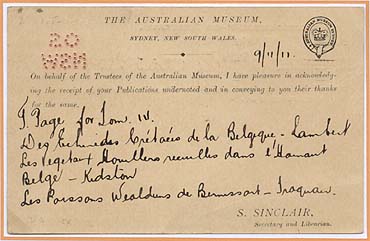 THE AUSTRALIAN MUSEUM,
SYDNEY, NEW SOUTH WALES.
OS
NSW
9/11/11.
On behalf of the Trustees of the Australian Museum, I have pleasure in acknowledg-
ing the receipt of your Publications undernoted and in conveying to you their thanks
for the same.
T. Page for Tom. IV.
Des Echinides Crétacés de la Belgique - Lambert
Les Vegetaux Houillers recueilles dans l'Hainaut
Belge - Kidston
Les Poissons Wealdiens de Bernissart - Traquair.
S. SINCLAIR,
Secretary and Librarian.